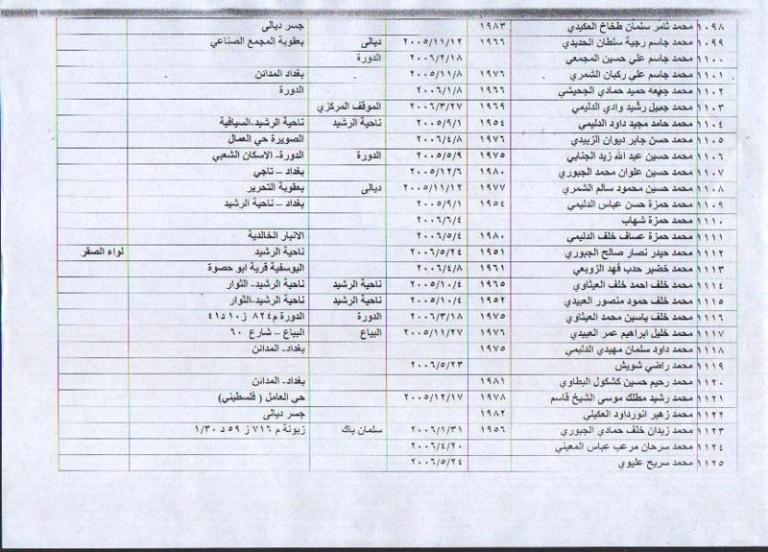 ١٠٩٨ محمد ثامر سلمان طخاخ العكيدي ١٩٨٣ جسر ديالى
١٠٩٩ محمد جاسم رجية سلطان الحديدي ١٩٦٦ ٢٠٠٥/١١/١٢ ديالى بعقوبة المجمع الصناعي
١١٠٠ محمد جاسم علي حسين المجمعي ٢٠٠٦/٢/١٨ الدورة
١١٠١ محمد جاسم علي ركبان الشمري ١٩٧٦ ٢٠٠٥/١١/٨ بغداد المدائن
١١٠٢ محمد جهعه حميد حمادي الجحيشي ١٩٦٦ ٢٠٠٦/١/٨ الدورة
١١٠٣ محمد جميل رشيد وادي الدليمي ١٩٦٩ ٢٠٠٦/٣/٢٧ الموقف المركزي
١١٠٤ محمد حامد مجيد داود الدليمي ١٩٥٤ ٢٠٠٥/٩/١ ناحية الرشيد ناحية الرشيد-السيافية
١١٠٥ محمد حسن جابر ديوان الزبيدي ١٩٧٦ ٢٠٠٦/٤/٨ الصويرة حي العمال
١١٠٦ محمد حسين عبد الله زيد الجنابي ١٩٧٥ ٢٠٠٥/٥/٩ الدورة الدورة- الاسكان الشعبي
١١٠٧ محمد حسين علوان محمد الجبوري ١٩٨٠ ٢٠٠٥/١٢/٦ بغداد – تاجي
١١٠٨ محمد حسين محمود سالم الشمري ١٩٧٧ ٢٠٠٥/١١/١٢ ديالى بعقوبة التحرير
١١٠٩ محمد حمزة حسن عباس الدليمي ١٩٥٤ ٢٠٠٥/٩/١ بغداد – ناحية الرشيد
١١١٠ محمد حمزة شهاب ٢٠٠٦/٦/٤
١١١١ محمد حمزة عساف خلف الدليمي ١٩٨٠ ٢٠٠٦/٥/٤ الانبار الخالدية
١١١٢ محمد حيدر نصار صالح الجبوري ١٩٥١ ٢٠٠٦/٥/٢٤ ناحية الرشيد لواء الصقر
١١١٣ محمد خضير حدب فهد الزوبعي ١٩٦١ ٢٠٠٦/٤/٨ اليوسفية قرية ابو حصوة
١١١٤ محمد خلف احمد خلف العيثاوي ١٩٦٥ ٢٠٠٥/١٠/٤ ناحية الرشيد ناحية الرشيد- الثوار
١١١٥ محمد خلف حمود منصور العبيدي ١٩٥٢ ٢٠٠٥/١٠/٤ ناحية الرشيد ناحية الرشيد-الثوار
١١١٦ محمد خلف ياسين محمد العيثاوي ١٩٧٥ ٢٠٠٦/٣/١٨ الدورة الدورة م٨٢٤ ز١٠د٤١
١١١٧ محمد خليل ابراهيم عمر العبيدي ١٩٧٦ ٢٠٠٥/١١/٢٧ البياع البياع – شارع ٦٠
١١١٨ محمد داود سلمان مهيدي الدليمي ١٩٧٥ بغداد- المدائن
١١١٩ محمد راضي شويش ٢٠٠٦/٥/٢٣
١١٢٠ محمد رحيم حسين كشكول البطاوي ١٩٨١ بغداد- المدائن
١١٢١ محمد رشيد مطلك موسى الشيخ قاسم ١٩٧٨ ٢٠٠٥/١٢/١٧ حي العامل ( فلسطيني)
١١٢٢ محمد زهير انورداود العكيلي ١٩٨٢ جسر ديالى
١١٢٣ محمد زيدان خلف حمادي الجبوري ١٩٥٦ ٢٠٠٦/١/٣١ سلمان باك زيونة م ٧١٦ ز ٥٩ د ١/٣٠
١١٢٤ محمد سرحان مرعب عباس المعيني ٢٠٠٦/٤/٢٠
١١٢٥ محمد سريح عليوي ٢٠٠٦/٥/٢٤